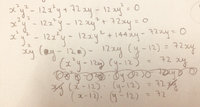 x²y² - 12x²y + 72xy - 12xy² = 0
x²y² - 12x²y - 12xy² + 72xy = 0
x²y² - 12x²y - 12xy² + 144xy - 72xy = 0
xy (xy - 12x) - 12xy (y - 12) = 72xy
(x²y - 12xy) (y - 12) = 72 xy
xy (x - 12) (y - 12) = 72 xy
(x - 12) (y - 12) = 72